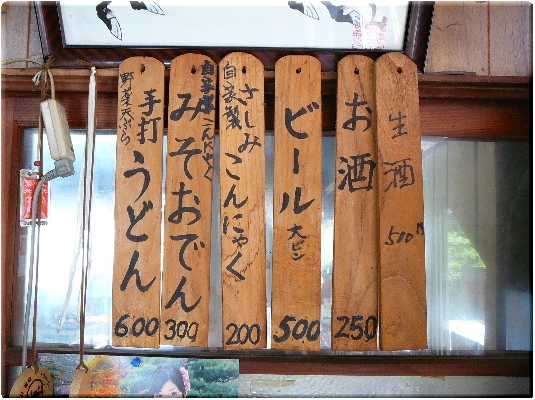 生酒
510円
お酒
250
ビール 大ビン
500
自家製
さしみこんにゃく
200
自家製こんにゃく
みそおでん
300
野菜天ぷら
手打うどん
600